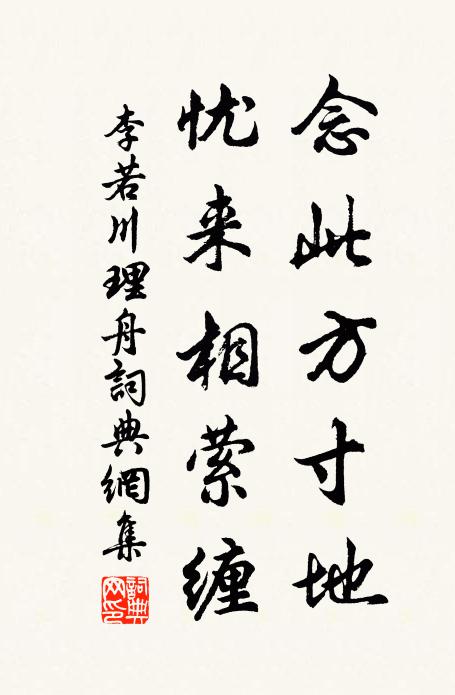 念此方寸地
忧来相萦缠
李若川理舟詞典網集
詞典网印